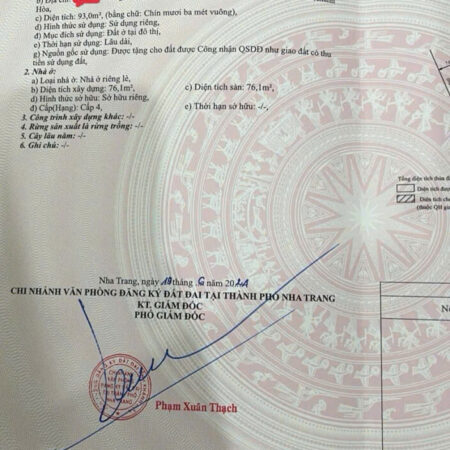 b) Địa chỉ:
Hòa,
c) Diện tích: 93,0m², (bằng chữ: Chín mươi ba mét vuông),
d) Hình thức sử dụng: Sử dụng riêng,
đ) Mục đích sử dụng: Đất ở tại đô thị,
e) Thời hạn sử dụng: Lâu dài,
g) Nguồn gốc sử dụng: Được tặng cho đất được Công nhận QSDĐ như giao đất có thu
tiền sử dụng đất,
2. Nhà ở:
a) Loại nhà ở: Nhà ở riêng lẻ,
b) Diện tích xây dựng: 76,1m², c) Diện tích sàn: 76,1m²,
d) Hình thức sở hữu: Sở hữu riêng,
đ) Cấp(Hạng): Cấp 4, e) Thời hạn sở hữu: -/-,
3. Công trình xây dựng khác: -/-
4. Rừng sản xuất là rừng trồng: -/-
5. Cây lâu năm: -/-
6. Ghi chú: -/-
Tổng diện tích thửa đ
Diện tích đượ
Diện tích ch
(thuộc QH gia
Nha Trang, ngày tháng năm 2021
CHI NHÁNH VĂN PHÒNG ĐĂNG KÝ ĐẤT ĐAI TẠI THÀNH PHỐ NHA TRANG
KT. GIÁM ĐỐC
PHÓ GIÁM ĐỐC
Phạm Xuân Thạch